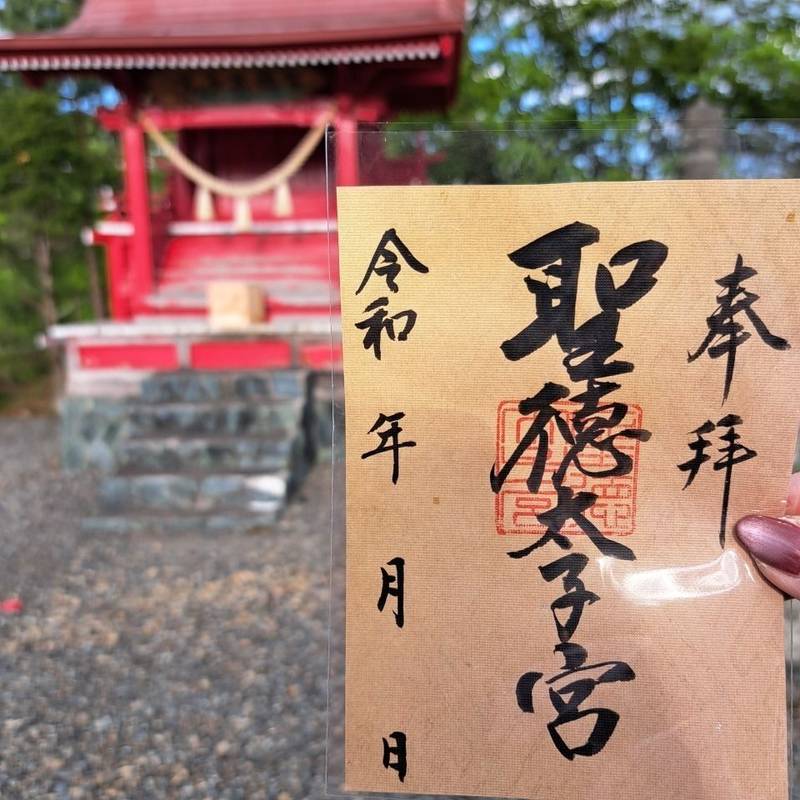 奉拝
聖徳太子宮
令和 年 月 日